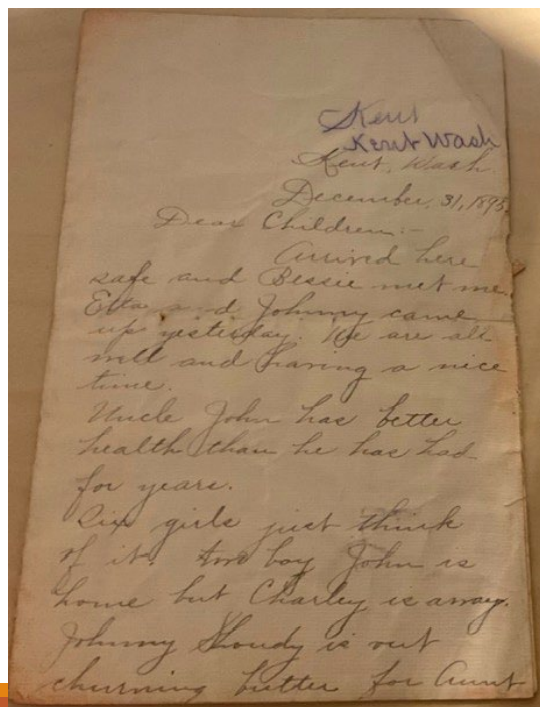 Kent
Kent Wash
Kent, Wash.
December, 31, 1895,
Dear Children:-
Arrived here
safe and Bessie met me.
Etta and Johnny came
up yesterday. We are all
well and having a nice
time.
Uncle John has better
health than he has had
for years.
Six girls just think
of it. boy John is
home but Charley is away.
Johnny Shoudy is out
churning butter for Aunt